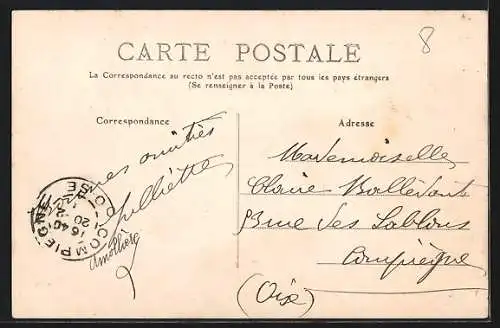 8
CARTE POSTALE
La Correspondance au recto n'est pas acceptée par tous les pays étrangers
(Se renseigner à la Poste)
Correspondance
mes amitiés
Juliette
COMPIEGNE
OISE
16 40
Adresse
Mademoiselle
Claire
rue des Sablons
Compiègne
(Oise)